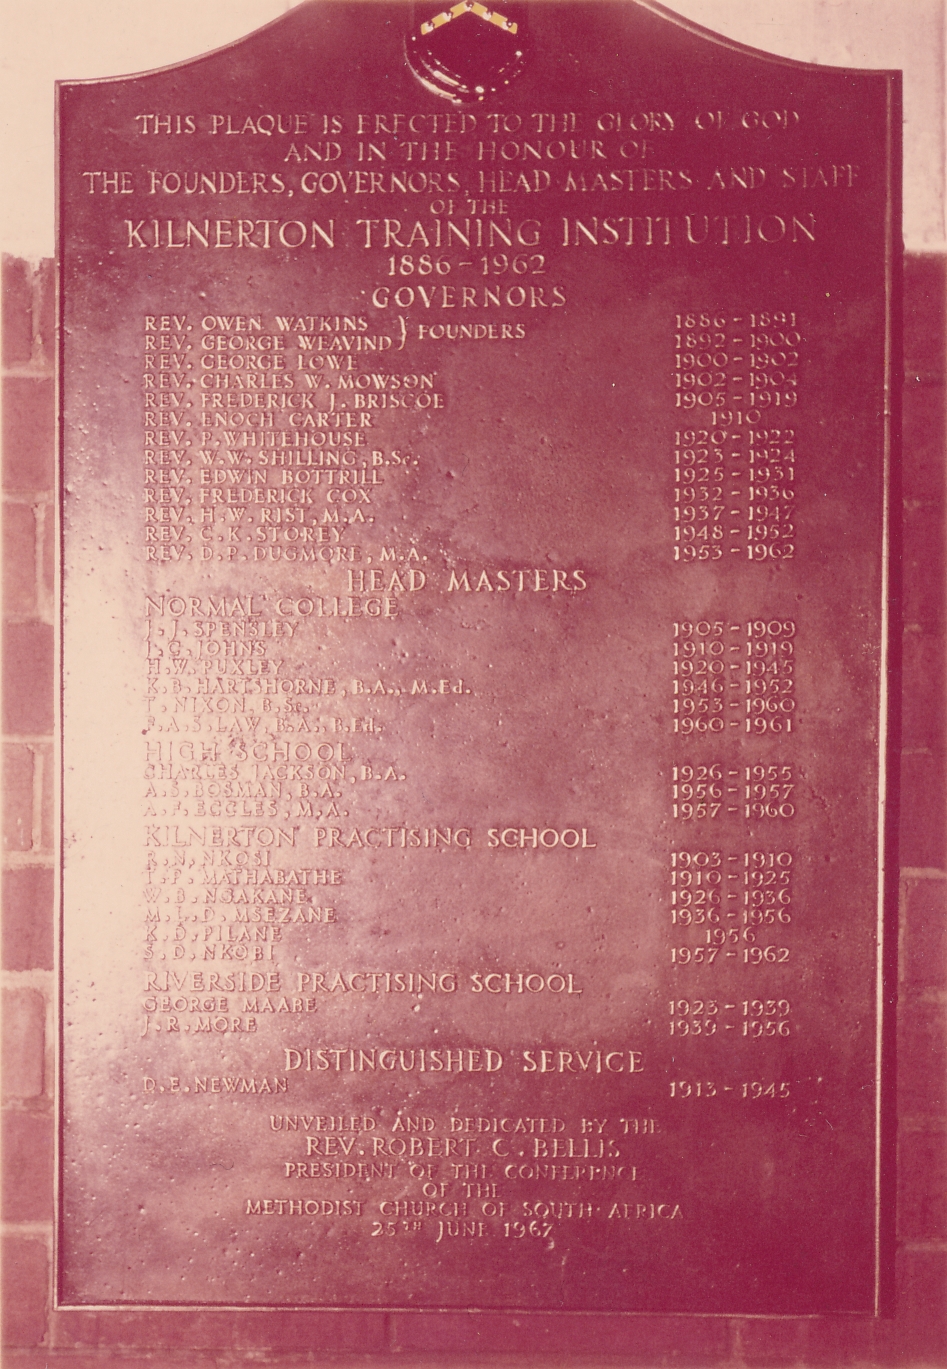 THIS PLAQUE IS ERECTED TO THE GLORY OF GOD
AND IN THE HONOUR OF
THE FOUNDERS, GOVERNORS, HEAD MASTERS AND STAFF
OF THE
KILNERTON TRAINING INSTITUTION
1886 - 1962
GOVERNORS
REV. OWEN WATKINS } FOUNDERS 1886 - 1891
REV. GEORGE WEAVIND 1892 - 1900
REV. GEORGE LOWE 1900 - 1902
REV. CHARLES W. MOWSON 1902 - 1904
REV. FREDERICK J. BRISCOE 1905 - 1919
REV. ENOCH CARTER 1910
REV. P. WHITEHOUSE 1920 - 1922
REV. W.W. SHILLING, B.Sc. 1923 - 1924
REV. EDWIN BOTTRILL 1925 - 1931
REV. FREDERICK COX 1932 - 1936
REV. H.W. RIST, M.A. 1937 - 1947
REV. C.K. STOREY 1948 - 1952
REV. D.P. DUGMORE, M.A. 1953 - 1962
HEAD MASTERS
NORMAL COLLEGE
J.J. SPENSLEY 1905 - 1909
J.G. JOHNS 1910 - 1919
H.W. PUXLEY 1920 - 1945
K.B. HARTSHORNE, B.A., M.Ed. 1946 - 1952
T. NIXON, B.Sc. 1953 - 1960
F.A.S. LAW, B.A., B.Ed. 1960 - 1961
HIGH SCHOOL
CHARLES JACKSON, B.A. 1926 - 1955
A.S. BOSMAN, B.A. 1956 - 1957
A.F. ECCLES, M.A. 1957 - 1960
KILNERTON PRACTISING SCHOOL
R.N. NKOSI 1903 - 1910
T.P. MATHABATHE 1910 - 1925
W.B. NGAKANE 1926 - 1936
M.L.D. MSEZANE 1936 - 1956
K.D. PILANE 1956
S.D. NKOBI 1957 - 1962
RIVERSIDE PRACTISING SCHOOL
GEORGE MAABE 1923 - 1939
J.R. MORE 1939 - 1956
DISTINGUISHED SERVICE
D.E. NEWMAN 1913 - 1945
UNVEILED AND DEDICATED BY THE
REV. ROBERT C. BELLIS
PRESIDENT OF THE CONFERENCE
OF THE
METHODIST CHURCH OF SOUTH AFRICA
25TH JUNE 1967